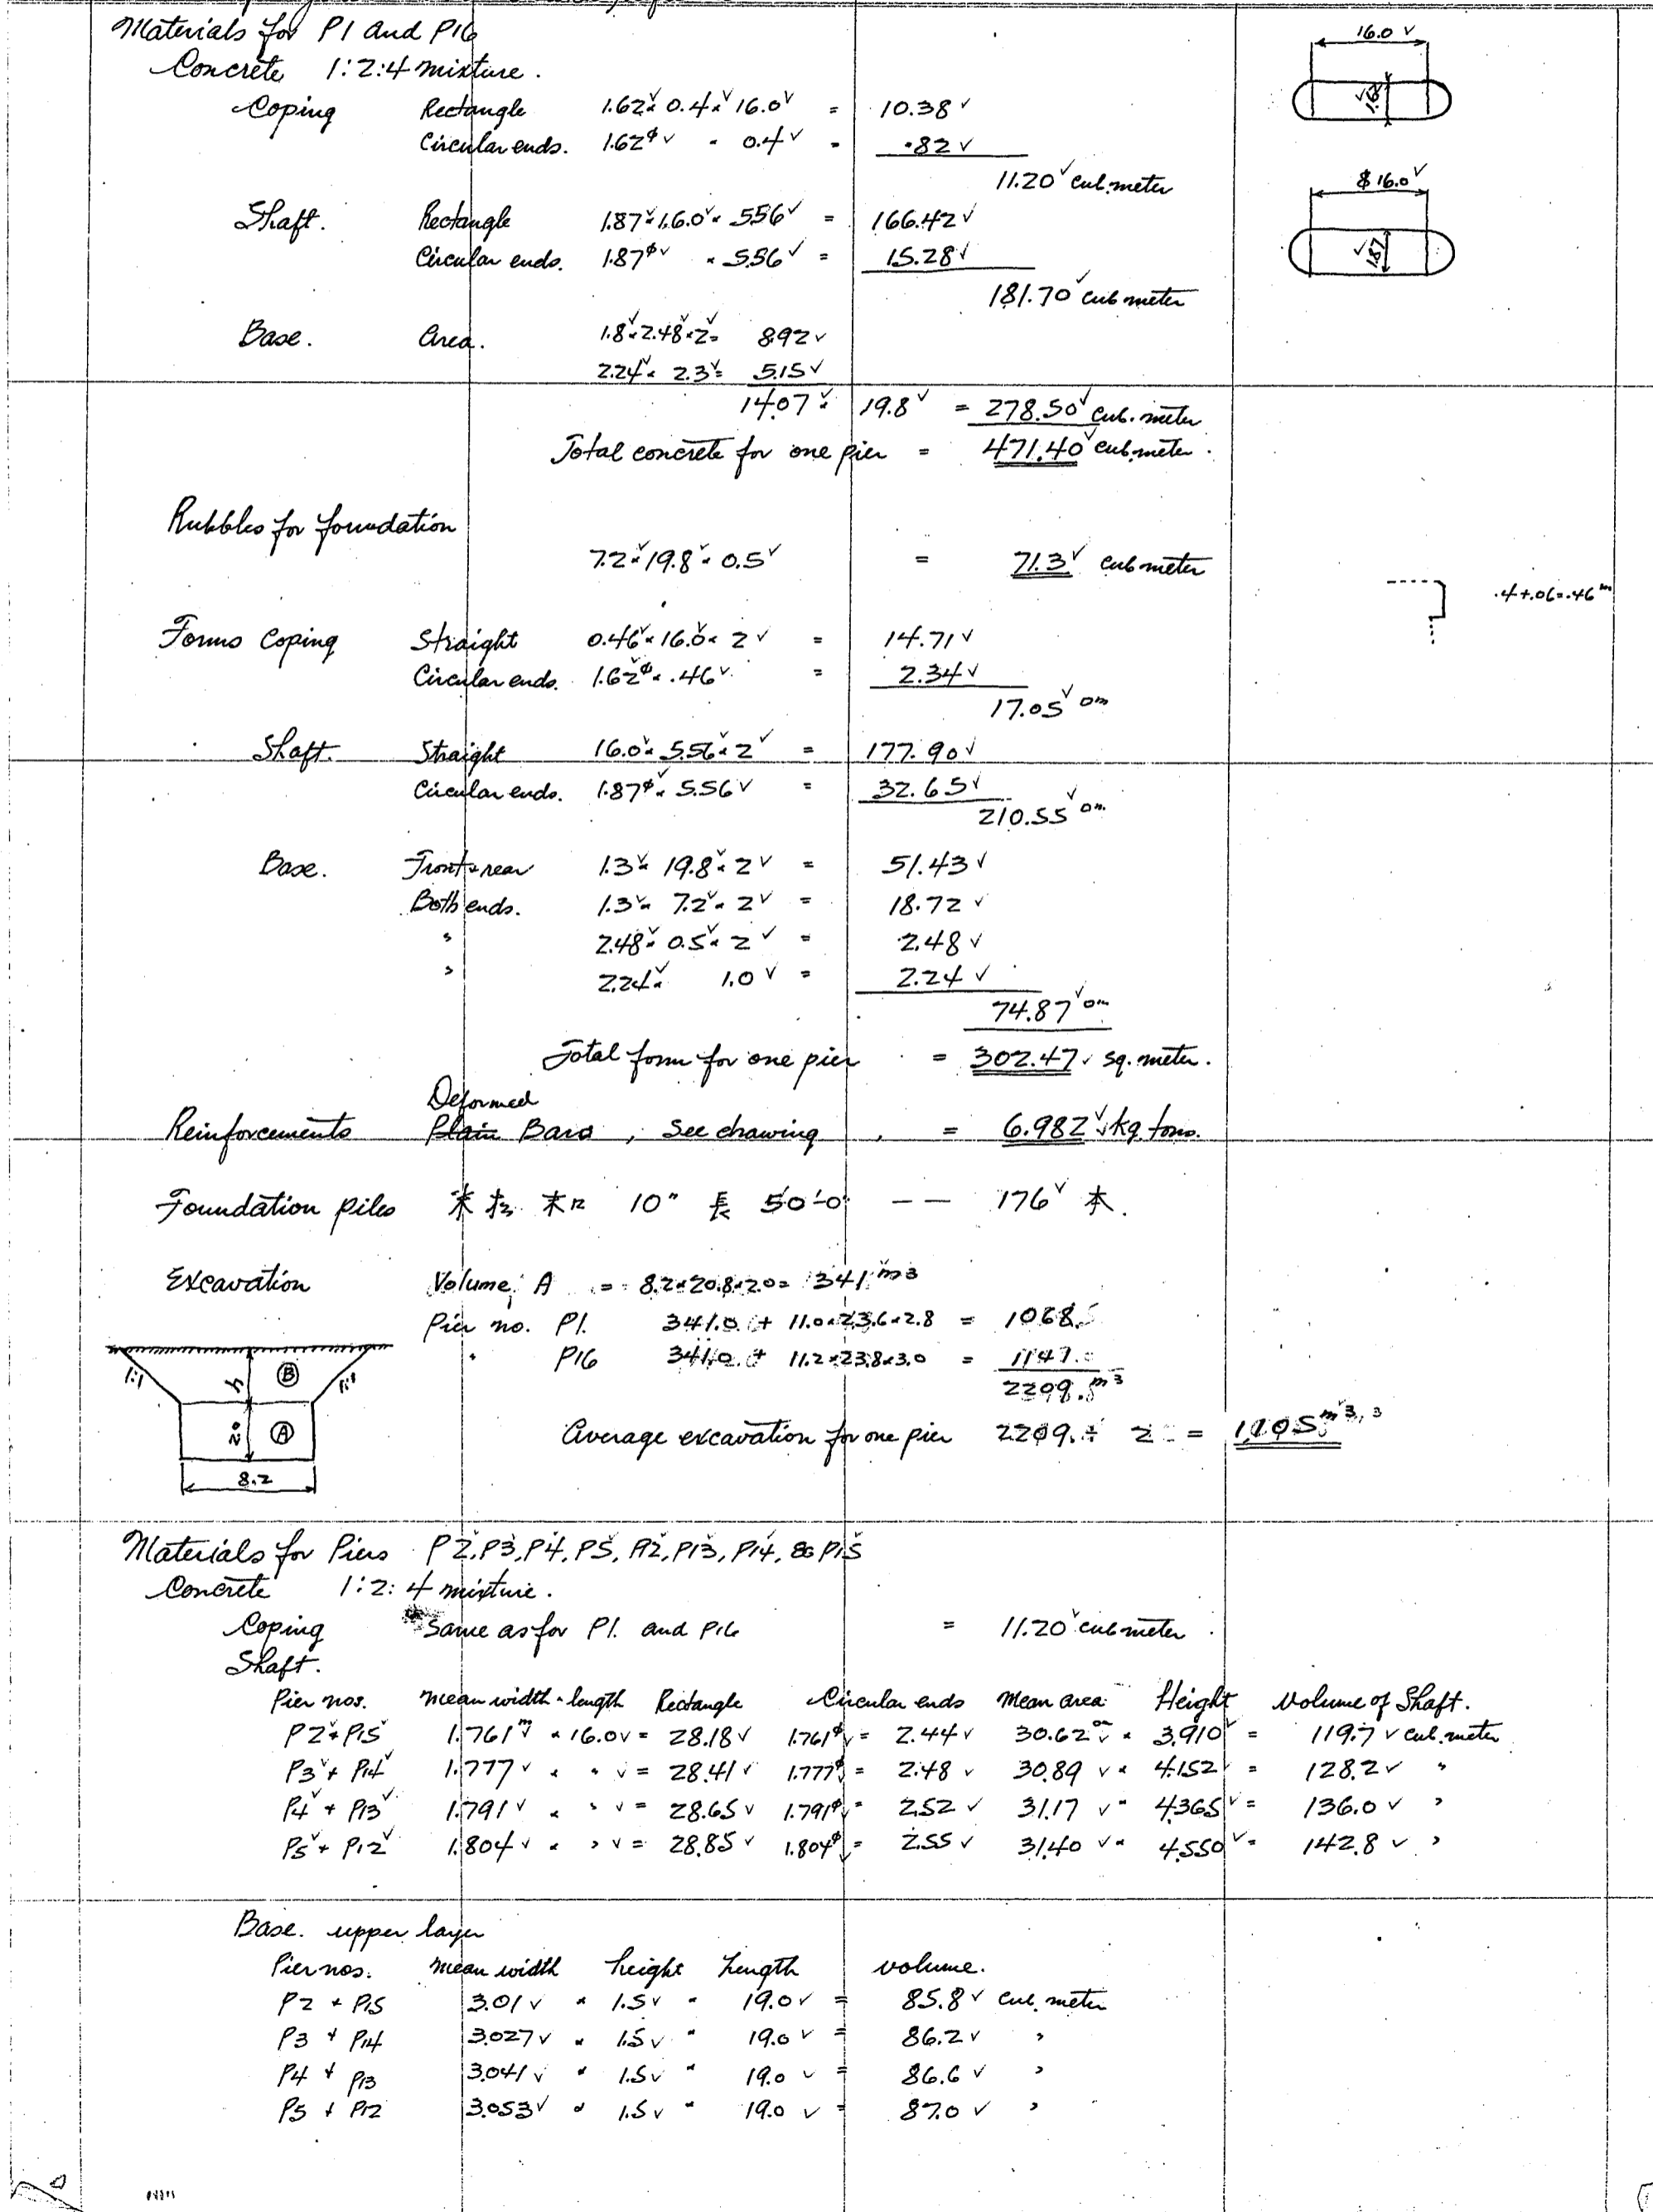 Materials for P1 and P16
Concrete 1:2:4 mixture.
16.0 ✓
Coping Rectangle 1.62✓ × 0.4 × ✓ 16.0✓ = 10.38 ✓
Circular ends. 1.62φ ✓ × 0.4 ✓ = .82 ✓
1.62
11.20 ✓ cub. meter
16.0 ✓
Shaft. Rectangle 1.87 ✓ × 16.0 ✓ × 5.56 ✓ = 166.42 ✓
Circular ends. 1.87φ ✓ × 5.56 ✓ = 15.28 ✓
1.87
181.70 ✓ cub meter
Base. Area. 1.8 ✓ × 2.48 ✓ × 2 ✓ = 8.92 ✓
2.24 ✓ × 2.3 ✓ = 5.15 ✓
14.07 ✓ × 19.8 ✓ = 278.50 ✓ cub. meter
Total concrete for one pier = 471.40 ✓ cub. meter.
Rubbles for foundation
7.2 ✓ × 19.8 ✓ × 0.5 ✓ = 71.3 ✓ cub meter
.4+.06=.46 m
Forms Coping Straight 0.46 ✓ × 16.0 ✓ × 2 ✓ = 14.71 ✓
Circular ends. 1.62φ × .46 ✓ = 2.34 ✓
17.05 ✓ □m
Shaft. Straight 16.0 ✓ × 5.56 × 2 ✓ = 177.90 ✓
Circular ends. 1.87φ ✓ × 5.56 ✓ = 32.65 ✓
210.55 ✓ □m
Base. Front & rear 1.3 ✓ × 19.8 ✓ × 2 ✓ = 51.43 ✓
Both ends. 1.3 ✓ × 7.2 ✓ × 2 ✓ = 18.72 ✓
" 2.48 ✓ × 0.5 ✓ × 2 ✓ = 2.48 ✓
" 2.24 ✓ × 1.0 ✓ = 2.24 ✓
74.87 ✓ □m
Total form for one pier = 302.47 ✓ sq. meter.
Deformed
Reinforcements Plain Bars, See drawing = 6.982 ✓ kg tons.
Foundation piles 米松 末口 10" 長 50'-0" -- 176 ✓ 本.
Excavation Volume; A = 8.2×20.8×2.0= 341 m3
Pier no. P1. 341.0 + 11.0×23.6×2.8 = 1068.
" P16 341.0 + 11.2×23.8×3.0 =
1:1 h B 1:1
2209. m3
2.0 A
Average excavation for one pier 2209. ÷ 2 = 1105 m3
8.2
Materials for Piers P2, P3, P4, P5, P12, P13, P14, & P15
Concrete 1:2:4 mixture.
Coping Same as for P1. and P16 = 11.20 ✓ cub meter.
Shaft.
Pier nos. Mean width × length Rectangle Circular ends Mean area Height Volume of Shaft.
P2 ✓ + P15 ✓ 1.761 m ✓ × 16.0 ✓ = 28.18 ✓ 1.761φ ✓ = 2.44 ✓ 30.62 □m ✓ × 3.910 ✓ = 119.7 ✓ cub. meter
P3 ✓ + P14 ✓ 1.777 ✓ × " ✓ = 28.41 ✓ 1.777φ ✓ = 2.48 ✓ 30.89 ✓ × 4.152 ✓ = 128.2 ✓ "
P4 ✓ + P13 ✓ 1.791 ✓ × " ✓ = 28.65 ✓ 1.791φ ✓ = 2.52 ✓ 31.17 ✓ × 4.365 ✓ = 136.0 ✓ "
P5 ✓ + P12 ✓ 1.804 ✓ × " ✓ = 28.85 ✓ 1.804φ ✓ = 2.55 ✓ 31.40 ✓ × 4.550 ✓ = 142.8 ✓ "
Base. upper layer
Pier nos. Mean width height Length volume.
P2 + P15 3.01 ✓ × 1.5 ✓ × 19.0 ✓ = 85.8 ✓ cub. meter
P3 + P14 3.027 ✓ × 1.5 ✓ × 19.0 ✓ = 86.2 ✓ "
P4 + P13 3.041 ✓ × 1.5 ✓ × 19.0 ✓ = 86.6 ✓ "
P5 + P12 3.053 ✓ × 1.5 ✓ × 19.0 ✓ = 87.0 ✓ "